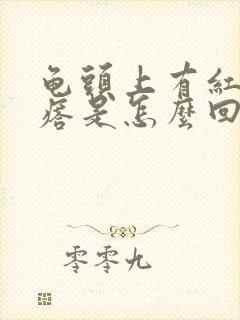 龟頭上有紅
痞是怎麼回
零零九